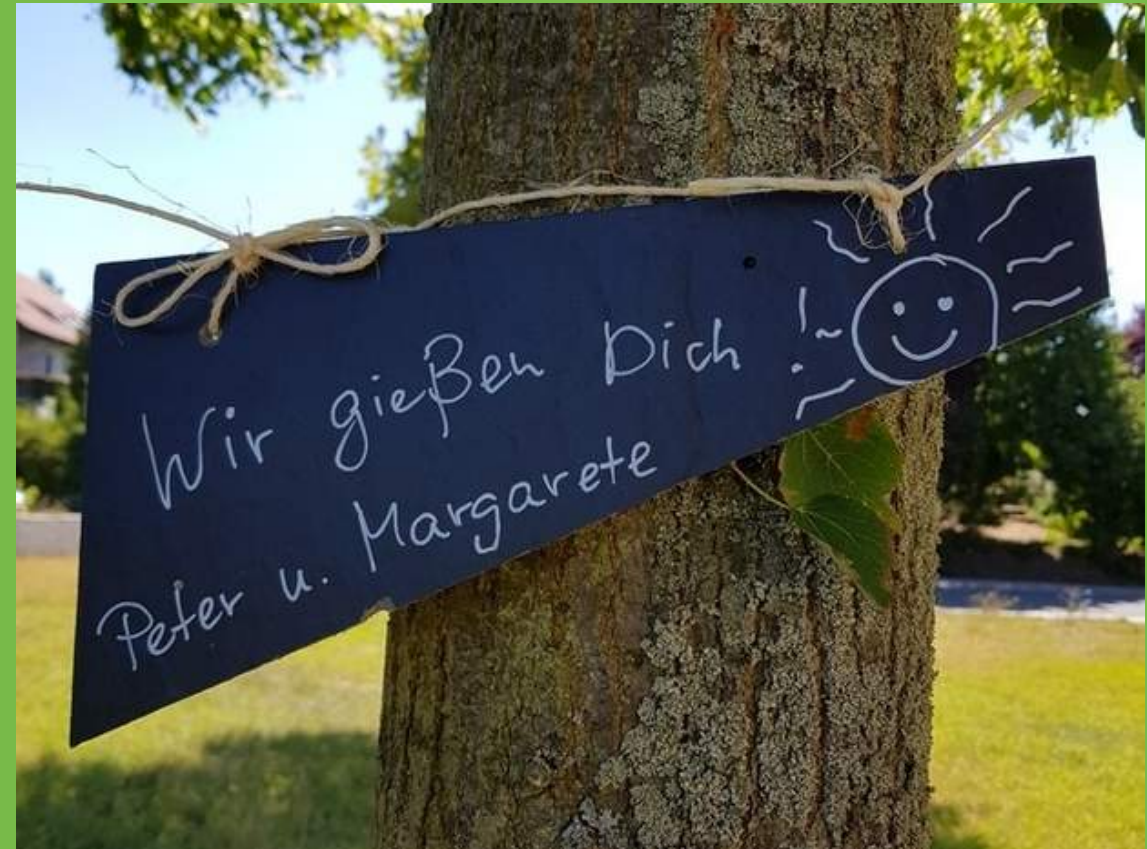 Wir gießen Dich!
Peter u. Margarete